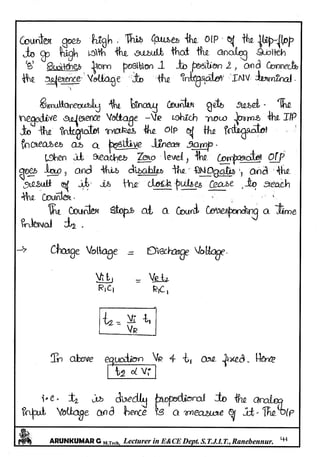 Counter goes high. This causes the O/P of the flip-flop
to go high with the result that the analog switch
'S' switches from position 1 to position 2, and connects
the reference Voltage to the integrator INV terminal.
Simultaneously the binary counter gets reset. The
negative reference Voltage -Ve which now forms the I/P
to the integrator makes the O/P of the integrator
increases as a positive linear ramp.
When it reaches Zero level, the Comparator O/P
goes low, and this disables the AND gate, and the
result of it is the clock pulses Cease to reach
the Counter.
The Counter stops at a Count Corresponding a time
interval t2.
→ Charge Voltage = Discharge Voltage.
Vi t1 / R1C1 = VR t2 / R1C1
t2 = Vi/VR t1
In above equation VR & t1 are fixed. Hence
t2 α Vi
i.e. t2 is directly propotional to the analog
input Voltage and hence is a measure of it. The O/P
ARUNKUMAR G M.Tech, Lecturer in E&CE Dept. S.T.J.I.T., Ranebennur. 44